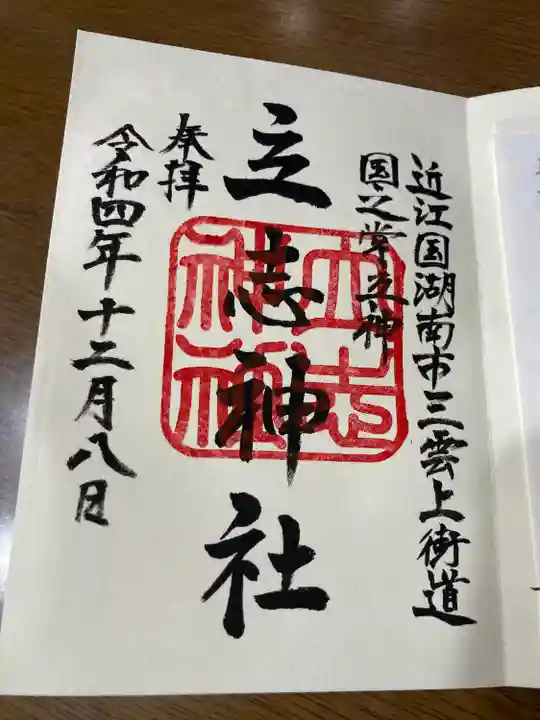 近江国湖南市三雲上街道
国之常立神
立志神社
立志神社
奉拝
令和四年十二月八日